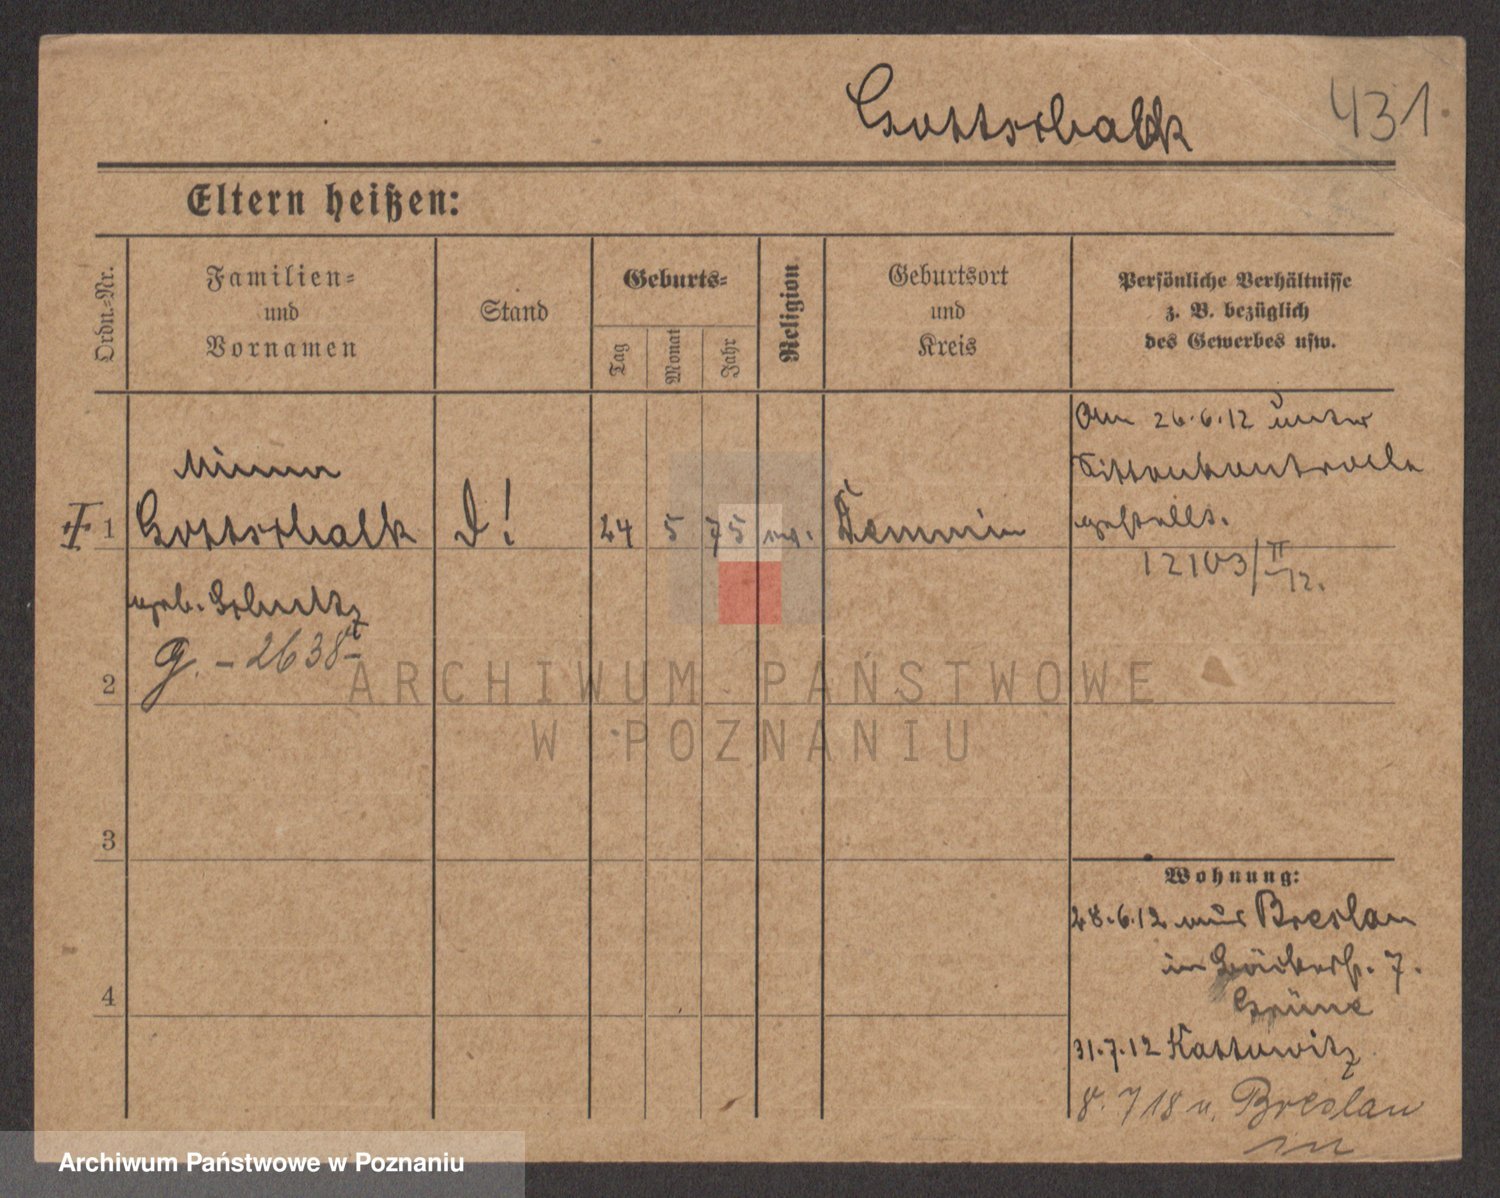 Gottschalk
431.
Eltern heißen:
Ordn.=Nr.
Familien=
und
Vornamen
Stand
Geburts=
Tag
Monat
Jahr
Religion
Geburtsort
und
Kreis
Persönliche Verhältnisse
z. B. bezüglich
des Gewerbes usw.
Minna
I 1 Gottschalk D! 24 5 75 Demmin
geb. Schultz
g. - 2638
Am 26.6.12 unter
Sittenkontrolle
gestellt.
12103/II 12.
2
3
4
Wohnung:
28.6.12 aus Breslau
in Bäckerstr. 7.
Grüne
31.7.12 Kattowitz
8. 7 18 v. Breslau
ARCHIWUM PAŃSTWOWE
W POZNANIU
Archiwum Państwowe w Poznaniu